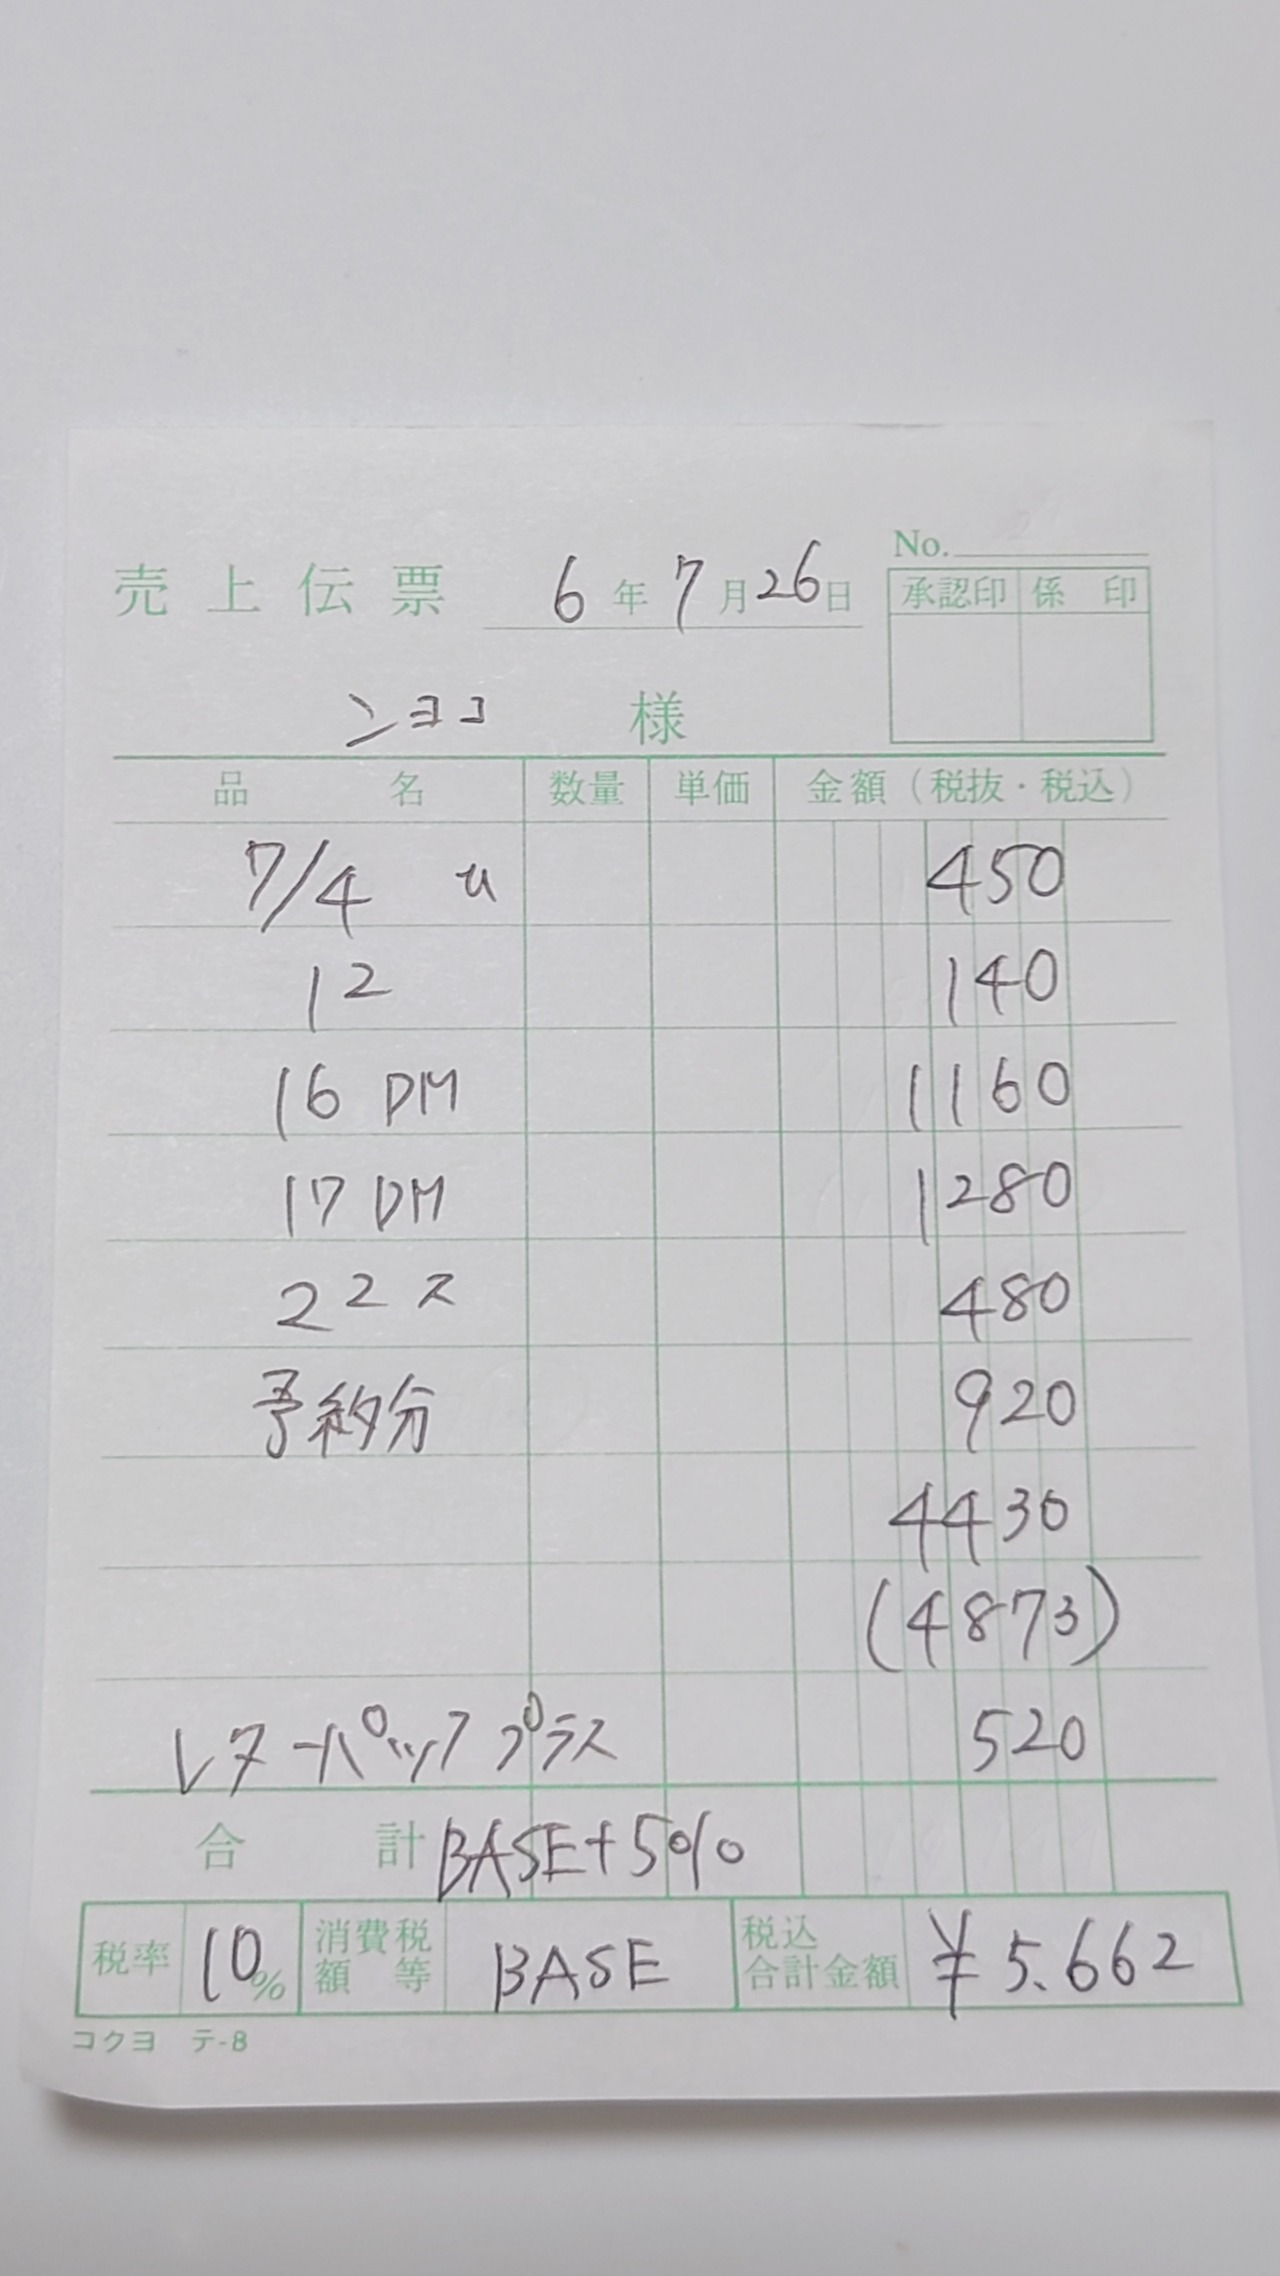 No.
売上伝票 6年7月26日
承認印 係印
ンヨコ 様
品名 数量 単価 金額(税抜・税込)
7/4 u 450
12 140
16 DM 1160
17 DM 1280
22 ス 480
予約分 920
4430
(4873)
レターパックプラス 520
合計 BASE+5%
税率 10% 消費税額等 BASE 税込合計金額 ¥5.662
コクヨ テ-8